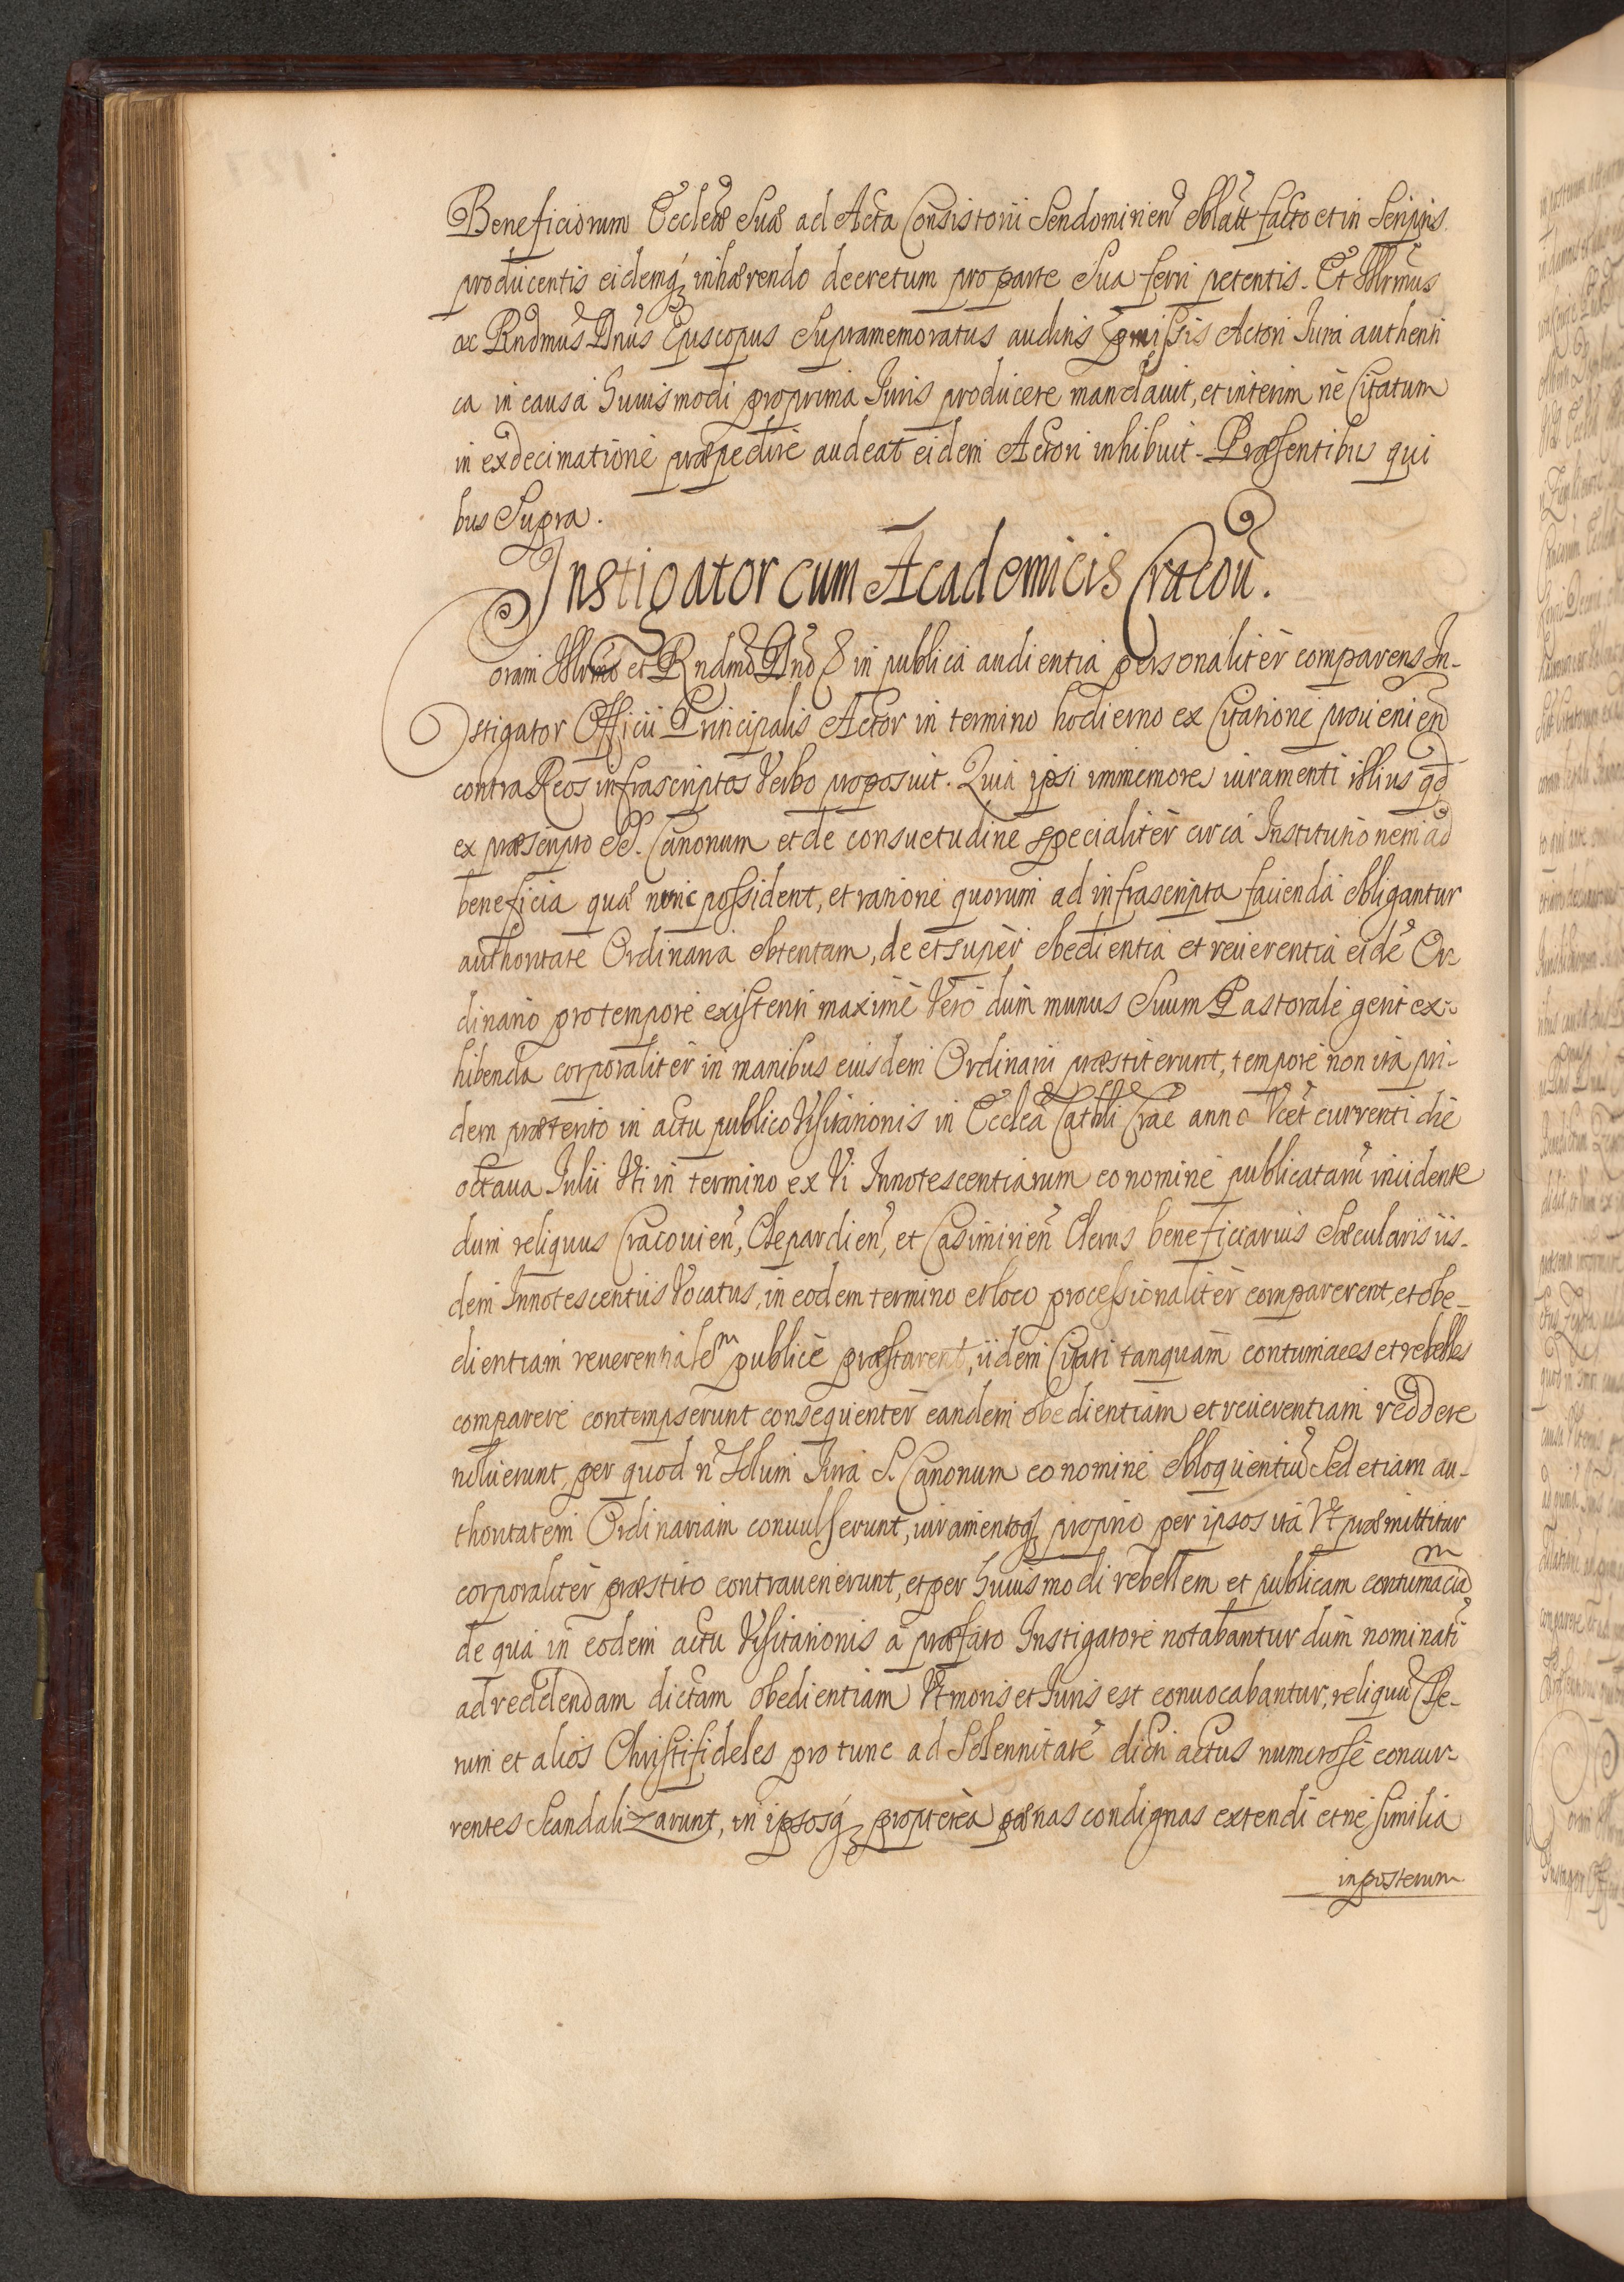 Beneficiorum Eccleæ Suæ ad Acta Consistorii Sendomirien oblatt facto et in Scriptis
producentis eidemq inhærendo decretum pro parte Sua ferri petentis. Et Illrmus
ac Rndmus Dnus Episcopus Supramemoratus auditis pmissis Actori Iura authenti
ca in causa huiusmodi pro prima Iuris producere mandauit, et interim ne Citatum
in exdecimatione præpedire audeat eidem Actori inhibuit. Præsentibus qui
bus Supra.
Instigator cum Academicis Cracou.
Coram Illrmo et Rndmo Dno in publica audientia personaliter comparens In-
stigator Officii Principalis Actor in termino hodierno ex Citatione prouenien
contra Reos infrascriptos Verbo proposuit. Quia ipsi immemores iuramenti illius qd
ex præscripto SS. Canonum et de consuetudine specialiter circa Institutionem ad
beneficia quæ nunc possident, et ratione quorum ad infrascripta facienda obligantur
authoritate Ordinaria obtentam, de et super obedientia et reuerentia eide Or-
dinario pro tempore existenti maxime Vero dum munus Suum Pastorale gerit ex-
hibenda corporaliter in manibus eiusdem Ordinarii præstiterunt, tempore non ita pri-
dem præterito in actu publico Visitationis in Ecclea Cathli Crac anno Vcet currenti die
octaua Iulii Uti in termino ex Vi Innotescentiarum eo nomine publicataru incidente
dum reliquus Cracouien, Clepardien, et Casimirien Clerus beneficiarius Sæcularis iis-
dem Innotescentiis Vocatus, in eodem termino et loco processionaliter comparerent, et obe-
dientiam reuerentialem publice præstarent, iidem Citati tanquam contumaces et rebelles
comparere contempserunt consequenter eandem obedientiam et reuerentiam reddere
noluerunt, per quod n Solum Iura S. Canonum eo nomine obloquentiu Sed etiam au-
thoritatem Ordinariam conuulserunt, iuramentoq proprio per ipsos ita Vt præmittitur
corporaliter præstito contrauenerunt, et per huiusmodi rebellem et publicam contumaciam
de qua in eodem actu Visitationis a præfato Instigatore notabantur dum nominati
ad reddendam dictam obedientiam Vt moris et Iuris est conuocabantur, reliquu Cle-
rum et alios Christifideles pro tunc ad Solennitate dicti actus numerose concur-
rentes Scandalizarunt, in ipsosq propterea pænas condignas extendi et ne similia
in posterum